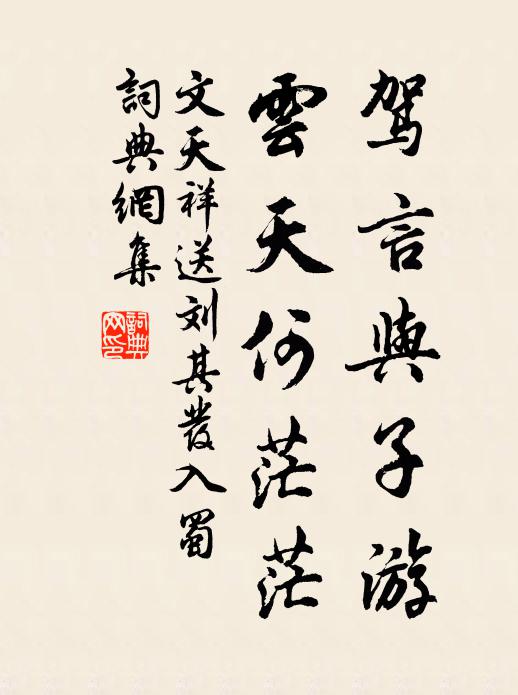 驾言與子游
雲天何茫茫
文天祥送刘其發入蜀
詞典網集
詞典
网印